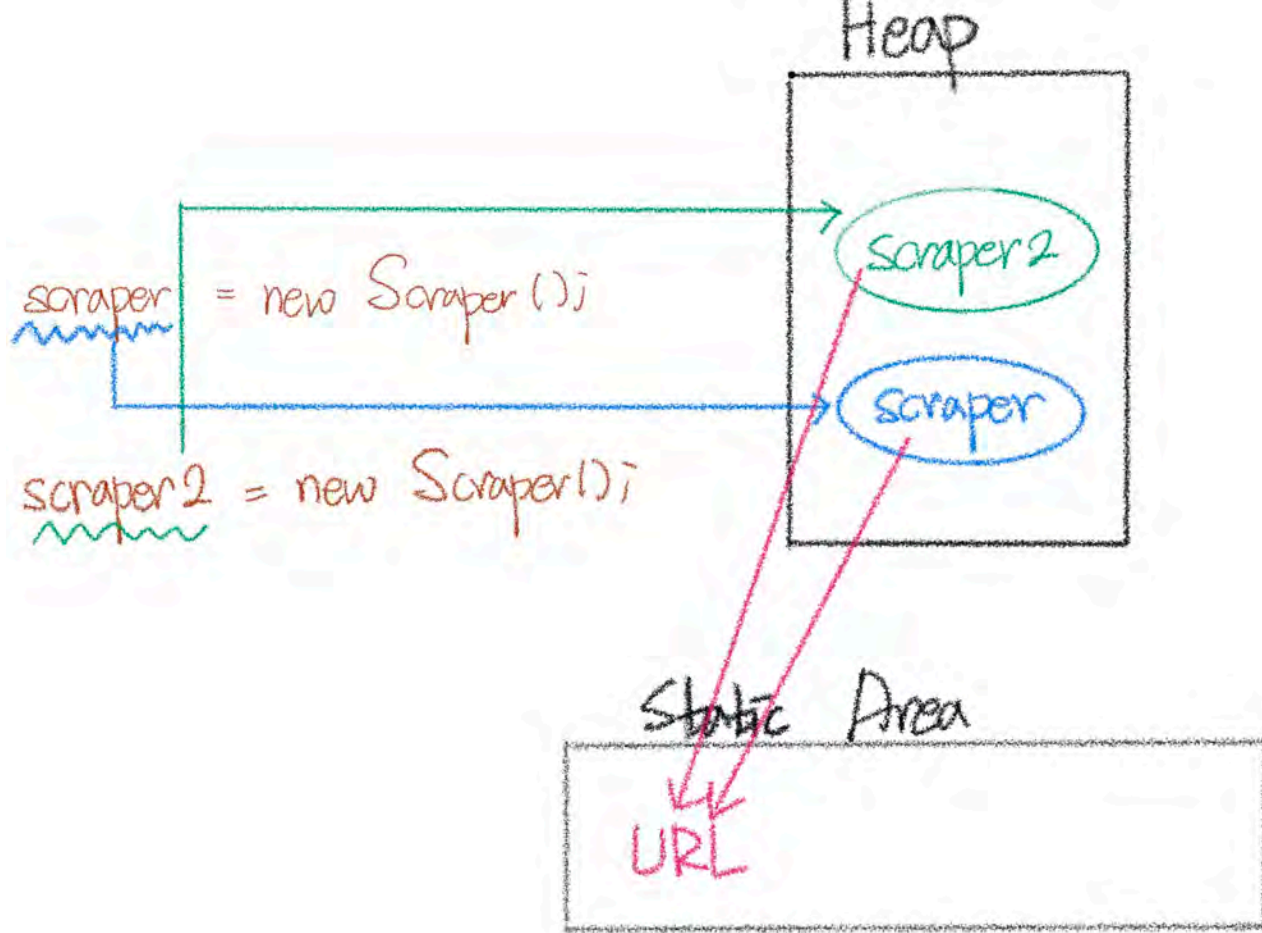 Heap
scraper2
scraper = new Scraper();
scraper
scraper2 = new Scraper();
Static Area
URL